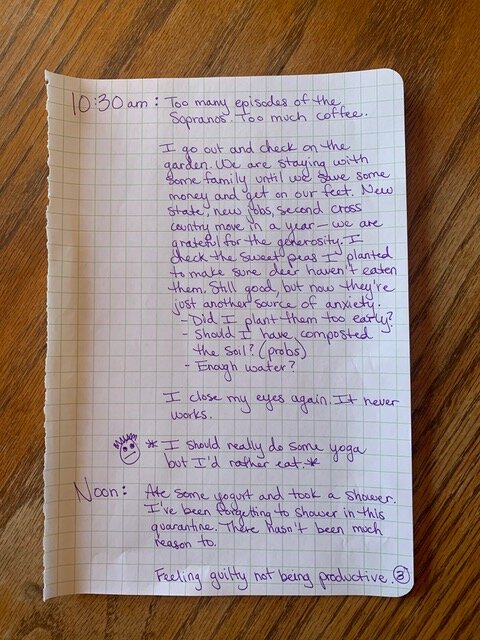 10:30 am: Too many episodes of the
Sopranos. Too much coffee.
I go out and check on the
garden. We are staying with
some family until we save some
money and get on our feet. New
state, new jobs, second cross
country move in a year — we are
grateful for the generosity. I
check the sweet peas I'd planted
to make sure deer haven't eaten
them. Still good, but now they're
just another source of anxiety.
- Did I plant them too early?
- Should I have composted
the soil? (probs)
- Enough water?
I close my eyes again. It never
works.
* I should really do some yoga
but I'd rather eat. *
Noon: Ate some yogurt and took a shower.
I've been forgetting to shower in this
quarantine. There hasn't been much
reason to.
Feeling guilty not being productive. 3